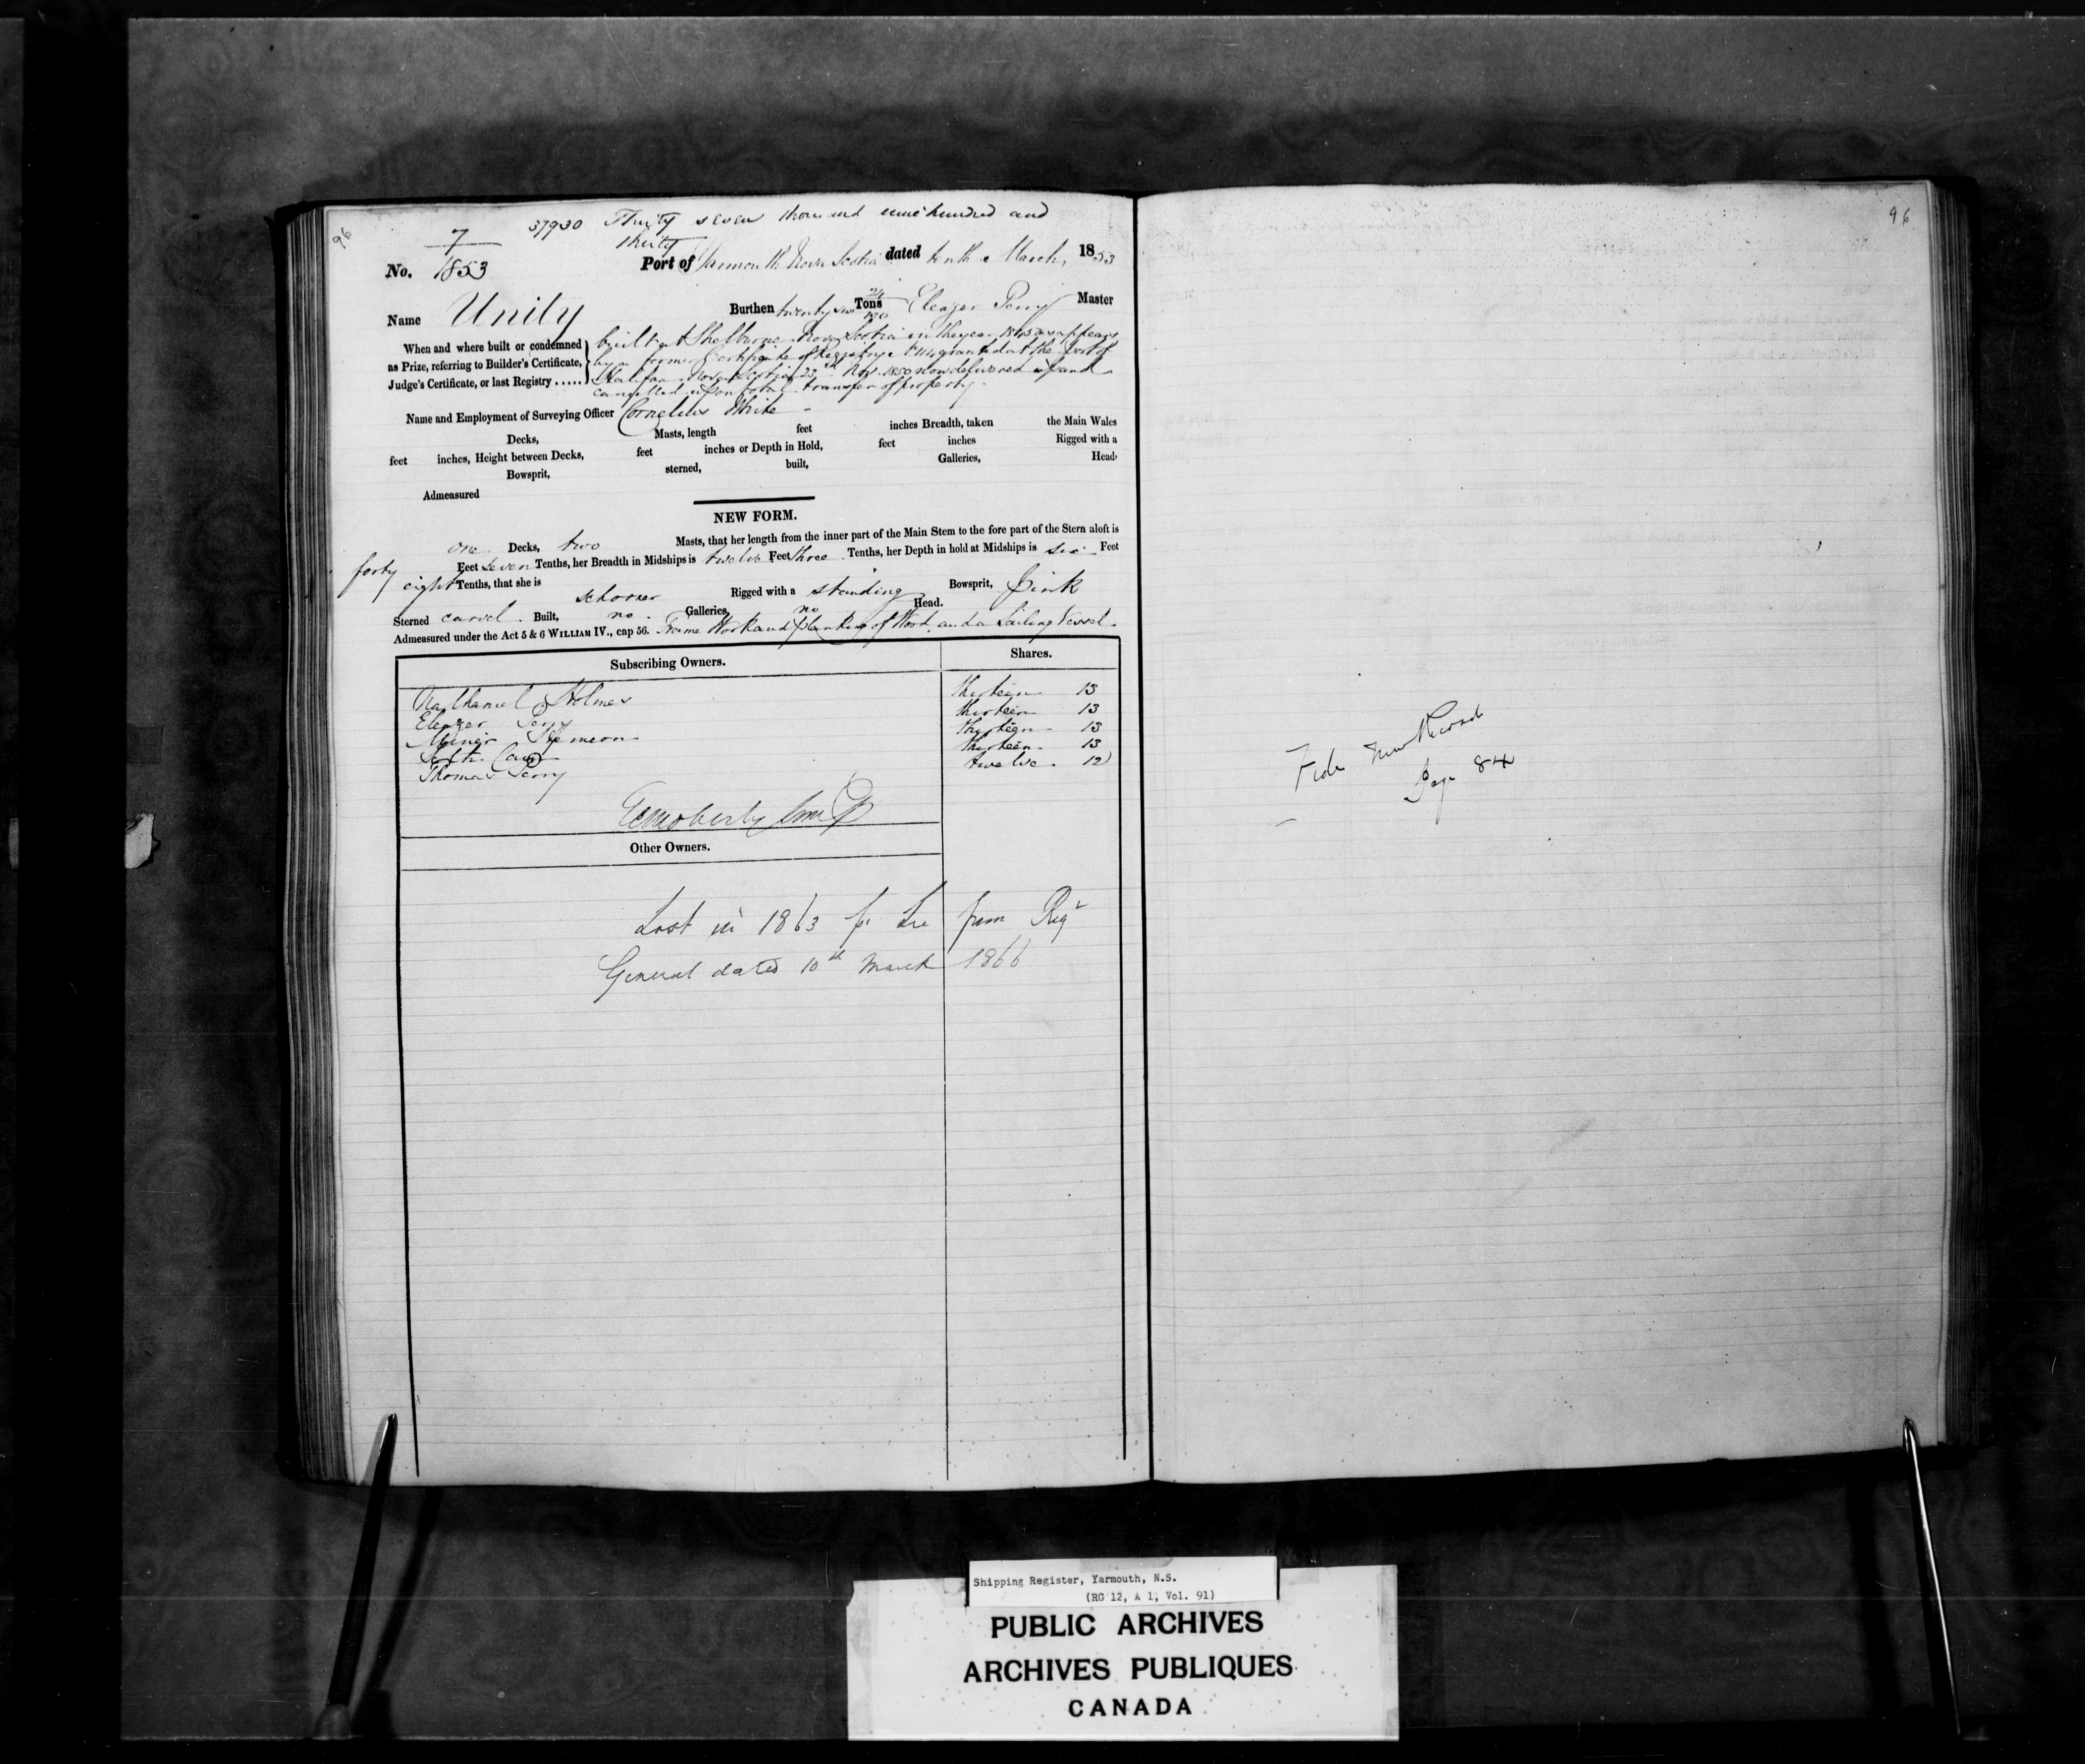 96
37930 Thirty seven thousand nine hundred and
thirty
No. 7/1853 Port of Yarmouth Nova Scotia dated tenth March, 1853
Name Unity Burthen twenty six 24/130 Tons Eleazer Perry Master
When and where built or condemned
as Prize, referring to Builder's Certificate,
Judge's Certificate, or last Registry .....
built at Shelburne Nova Scotia in the year as appears
by a former Certificate of Registry granted at the Port of
Halifax Nova Scotia 23 Nov. 1850 now delivered up and
cancelled upon total transfer of property.
Name and Employment of Surveying Officer Cornelius White
Decks, Masts, length feet inches Breadth, taken the Main Wales
feet inches, Height between Decks, feet inches or Depth in Hold, feet inches Rigged with a
Bowsprit, sterned, built, Galleries, Head,
Admeasured
NEW FORM.
one Decks, two Masts, that her length from the inner part of the Main Stem to the fore part of the Stern aloft is
forty Feet seven Tenths, her Breadth in Midships is twelve Feet three Tenths, her Depth in hold at Midships is six Feet
eight Tenths, that she is schooner Rigged with a standing Bowsprit, Pink
Sterned carvel Built, no Galleries, no Head.
Admeasured under the Act 5 & 6 WILLIAM IV., cap 56. Frame Work and planking of Wood and a Sailing Vessel.
Subscribing Owners. Shares.
Nathaniel Holmes thirteen 13
Eleazer Perry thirteen 13
thirteen 13
thirteen 13
Thomas Perry twelve 12
Other Owners.
Lost in 1863 from Regr
General dated 10th March 1866
96
Vide New Record
Page 84
Shipping Register, Yarmouth, N.S.
(RG 12, A 1, Vol. 91)
PUBLIC ARCHIVES
ARCHIVES PUBLIQUES
CANADA